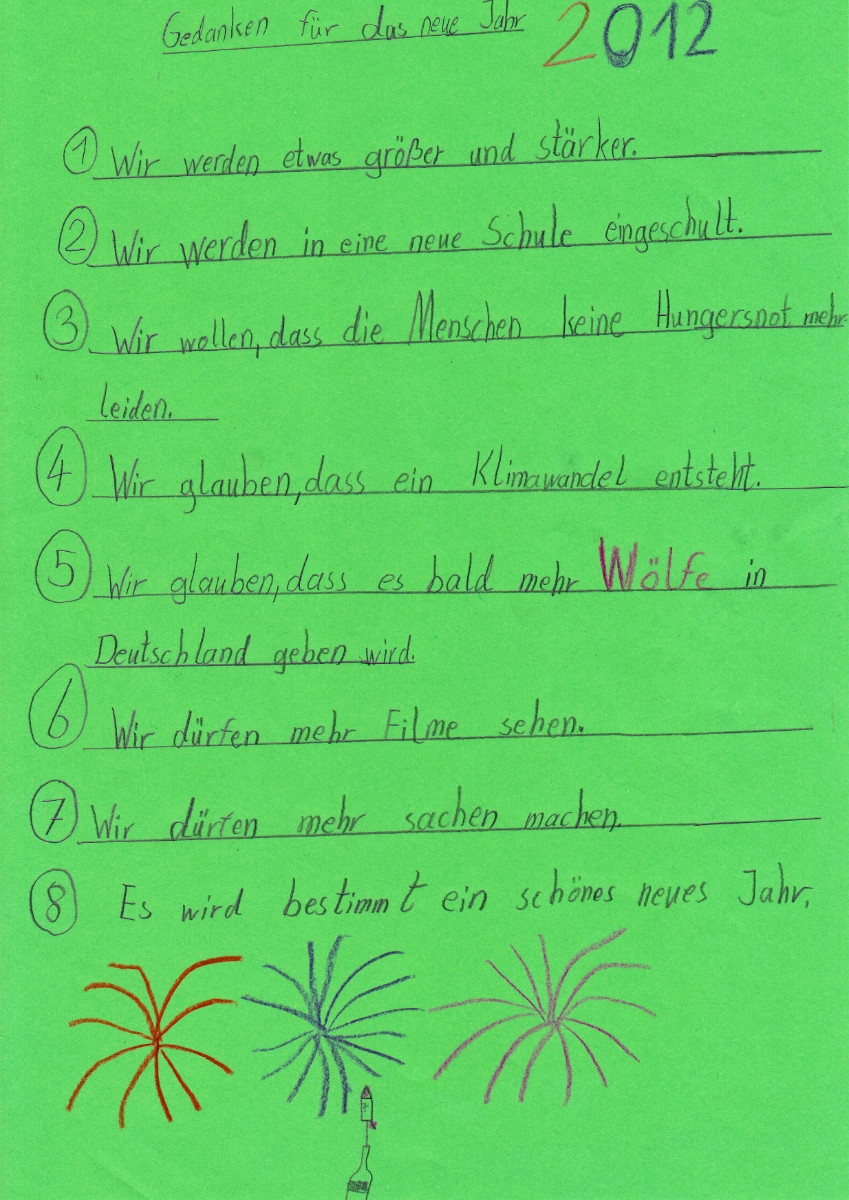 Gedanken für das neue Jahr 2012
1 Wir werden etwas größer und stärker.
2 Wir werden in eine neue Schule eingeschult.
3 Wir wollen, dass die Menschen keine Hungersnot mehr
leiden.
4 Wir glauben, dass ein Klimawandel entsteht.
5 Wir glauben, dass es bald mehr Wölfe in
Deutschland geben wird.
6 Wir dürfen mehr Filme sehen.
7 Wir dürfen mehr sachen machen.
8 Es wird bestimmt ein schönes neues Jahr.